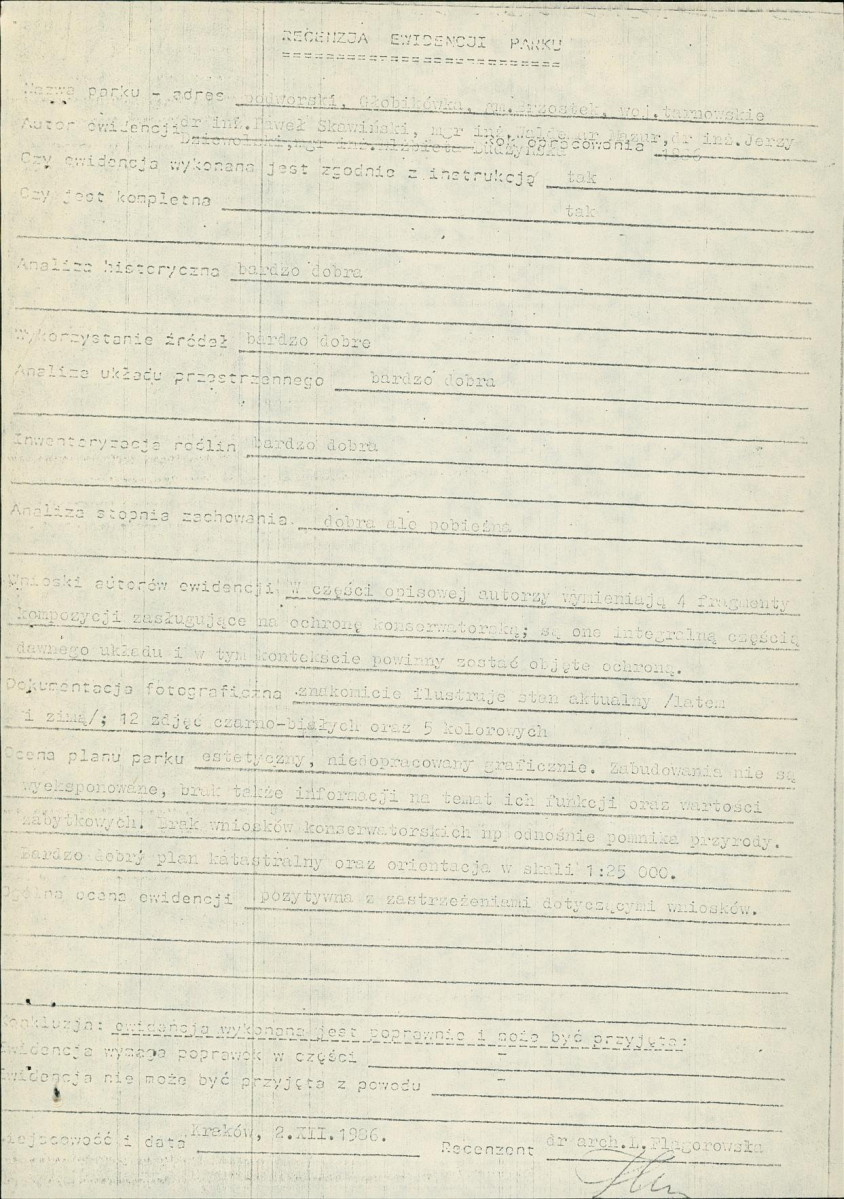 RECENZJA EWIDENCJI PARKU
Nazwa parku - adres podworski, Głobikówka, gm.Brzostek, woj.tarnowskie
Autor ewidencji mgr inż.Paweł Skawiński, mgr inż.Waldemar Mazur,dr inż.Jerzy
mgr inż.Elżbieta rok opracowania
Czy ewidencja wykonana jest zgodnie z instrukcją tak
Czy jest kompletna tak
Analiza historyczna bardzo dobra
Wykorzystanie źródeł bardzo dobre
Analiza układu przestrzennego bardzo dobra
Inwentaryzacja roślin bardzo dobra
Analiza stopnia zachowania dobra ale pobieżna
Wnioski autorów ewidencji W części opisowej autorzy wymieniają 4 fragmenty
kompozycji zasługujące na ochronę konserwatorską; są one integralną częścią
dawnego układu i w tym kontekście powinny zostać objęte ochroną.
Dokumentacja fotograficzna znakomicie ilustruje stan aktualny /latem
i zimą/; 12 zdjęć czarno-białych oraz 5 kolorowych
Ocena planu parku estetyczny, niedopracowany graficznie. Zabudowania nie są
wyeksponowane, brak także informacji na temat ich funkcji oraz wartości
zabytkowych. Brak wniosków konserwatorskich np odnośnie pomnika przyrody.
Bardzo dobry plan katastralny oraz orientacja w skali 1:25 000.
Ogólna ocena ewidencji pozytywna z zastrzeżeniami dotyczącymi wniosków.
Konkluzja: ewidencja wykonana jest poprawnie i może być przyjęta:
Ewidencja wymaga poprawek w części -
Ewidencja nie może być przyjęta z powodu -
Miejscowość i data Kraków, 2.XII.1986. Recenzent dr arch.